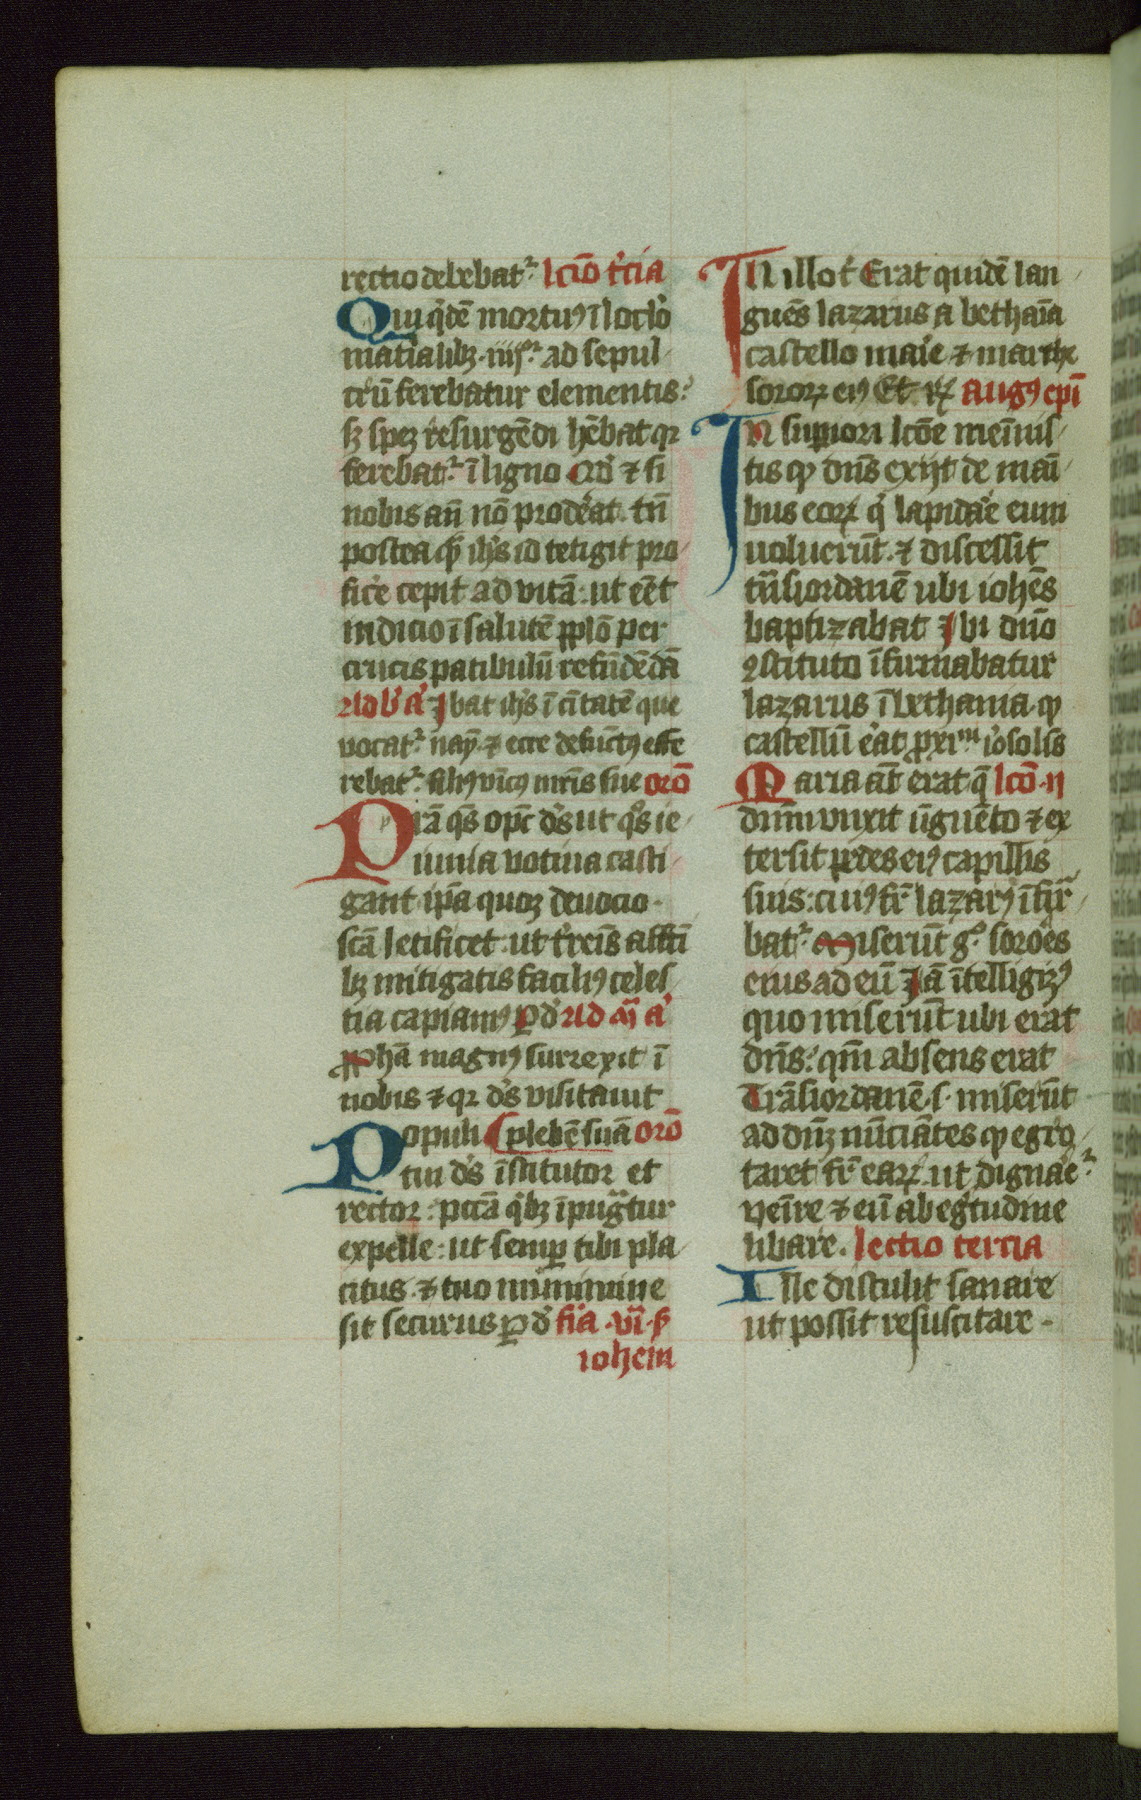 rectio debebat᷑ lcıo̅ t'cia
Qui q'de̅ mortuꝯ ı̅ loc̅lo
matialibꝫ iiijor ad sepul-
cru̅ ferebatur elementis:
sꝫ speꝫ resurge̅di he̅bat qr
ferebat᷑ ı̅ ligno Qd' ⁊ si
nobis an̅ no̅ prod'eat tn̅
postea qꝫ ih̅s id tetigit pro-
fic'e cepit ad vita̅: ut ee̅t
indicio ı̅ salute̅ pplo̅ per
crucis patibulu̅ refunde̅da̅
Ad b' a' Ibat ih̅s ı̅ ciitate̅ que
vocat᷑ nay̅ ⁊ ecce defu̅ctꝯ effe
rebat᷑ filiꝯ vn̅icꝯ mr̅is sue oro̅
Pira̅ qs̅ opc̅ ds̅ ut qs̅ ie-
iunia votiua casti-
gant ip̅a quoꝫ deuocio
sc̅a letificet ut t'reis̅ affc̅ti
bꝫ mitigatis faciliꝯ celes-
tia capiamꝯ p d' Ad m̅ a'
ꝓpha̅ magnꝯ surrexit ı̅
nobis ⁊ qr ds̅ visitauit
Populi plebe̅ sua̅ oro̅
tui ds̅ ı̅stitutor et
rector: pcc̅a q'bꝫ ı̅pug̅tur
expelle: ut semp tibi pla-
citus ⁊ tuo munimine
sit securus p d' fi'a vı̅ s'
iohem
In illo t' Erat quide̅ lan-
gue̅s lazarus a bethaı̅a
castello mai'e ⁊ marthe
sororꝝ eiꝯ Et rꝝ Augꝯ epı̅
In supiori lco̅e meı̅uis-
tis qꝫ dn̅s exijt de maı̅-
bus eorꝝ q' lapida'e eum
voluerut̅ ⁊ discessit
tn̅siordane̅ ubi iohe̅s
baptizabat Ibi dn̅o
ꝯstituto ı̅firmabatur
lazarus ı̅ bethania qꝫ
castellu̅ e'at ꝓxim̅ i'osolis
Maria at̅ erat q̅ lco̅ ii
dnm̅ vnxit u̅gue̅to ⁊ ex
tersit pedes eiꝯ capillis
suis: cuiꝯ fr̅ lazarꝯ ı̅fir̅-
bat᷑ Miseru̅t gº soro'es
eius ad eu̅ Ia̅ ı̅telligimꝯ
quo miseru̅t ubi erat
dn̅s: qm̅ absens erat
Tra̅siordane̅ s. miseru̅t
ad dn̅ꝫ nu̅cia̅tes qꝫ egro-
taret fr̅ earꝝ ut digna'e᷑
ven̅ire ⁊ eu̅ ab eg'tudine
libare. lectio tercia
Ille distulit sanare
ut possit resuscitare